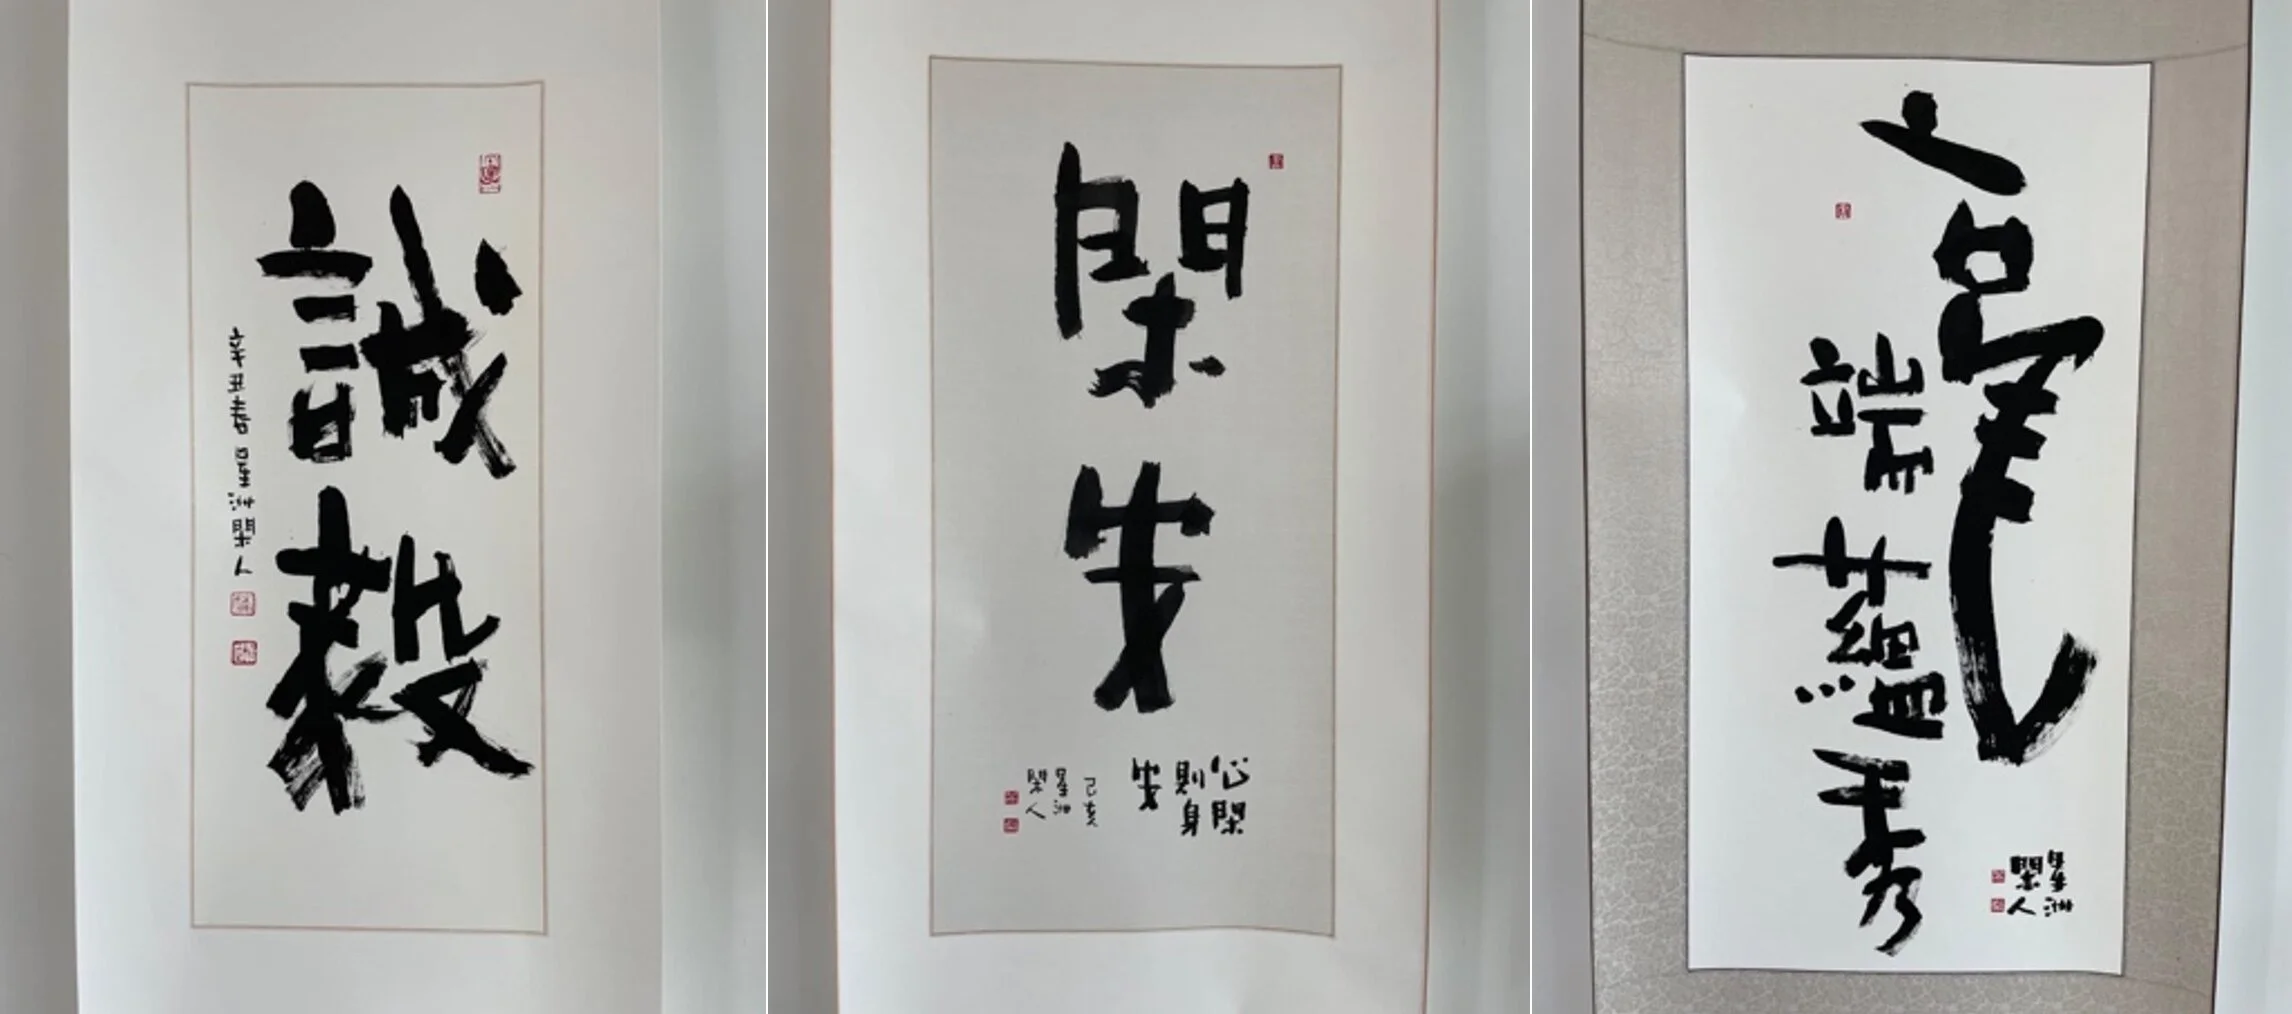 誠毅
辛丑春星洲閑人
閑安
心閑
則身
安
己亥
星洲
閑人
毫
端蘊秀
星洲
閑人